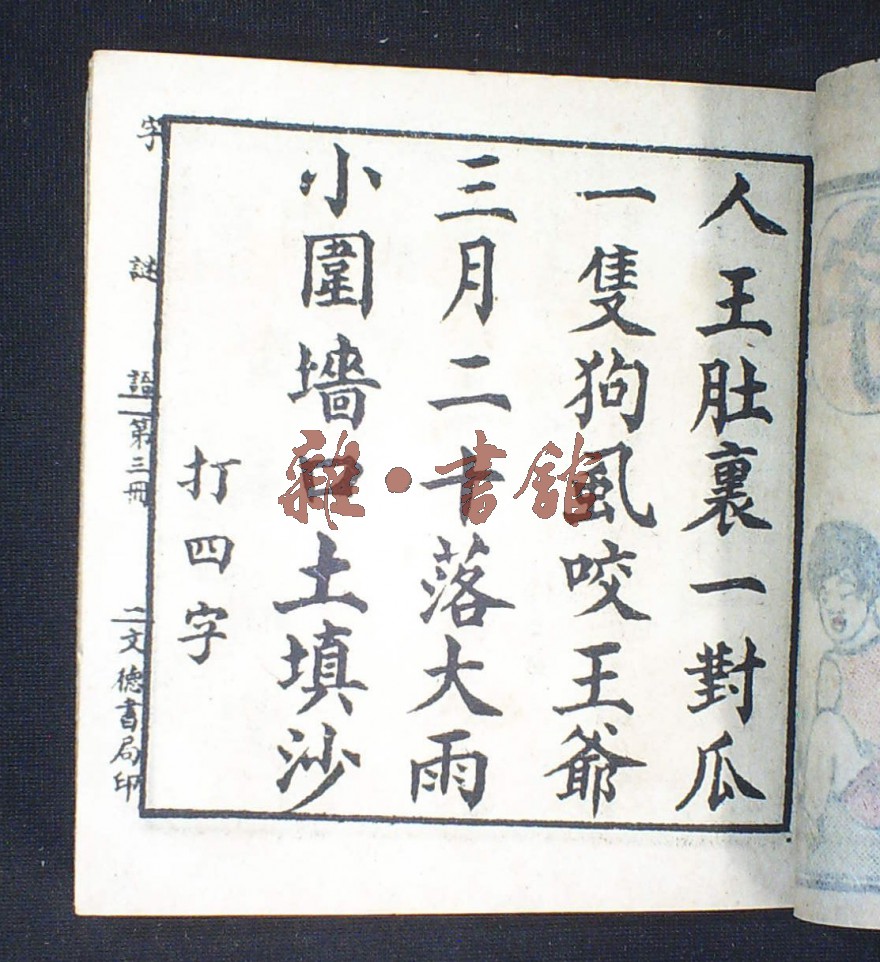 人王肚裏一對瓜
一隻狗風咬王爺
三月二十落大雨
小圍墻口土填沙
打四字
字謎語 第三冊 文德書局印
雜·書館